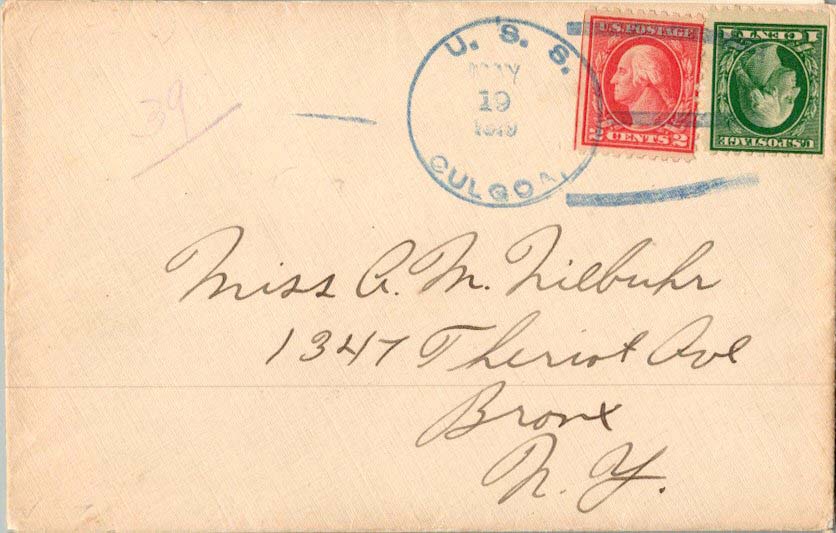 U. S. S.
MAY
19
1919
CULGOA.
U.S. POSTAGE
CENTS 2
1 CENT 1
U.S. POSTAGE
39
Miss A. M. Niebuhr
1347 Theriot Ave
Bronx
N. Y.